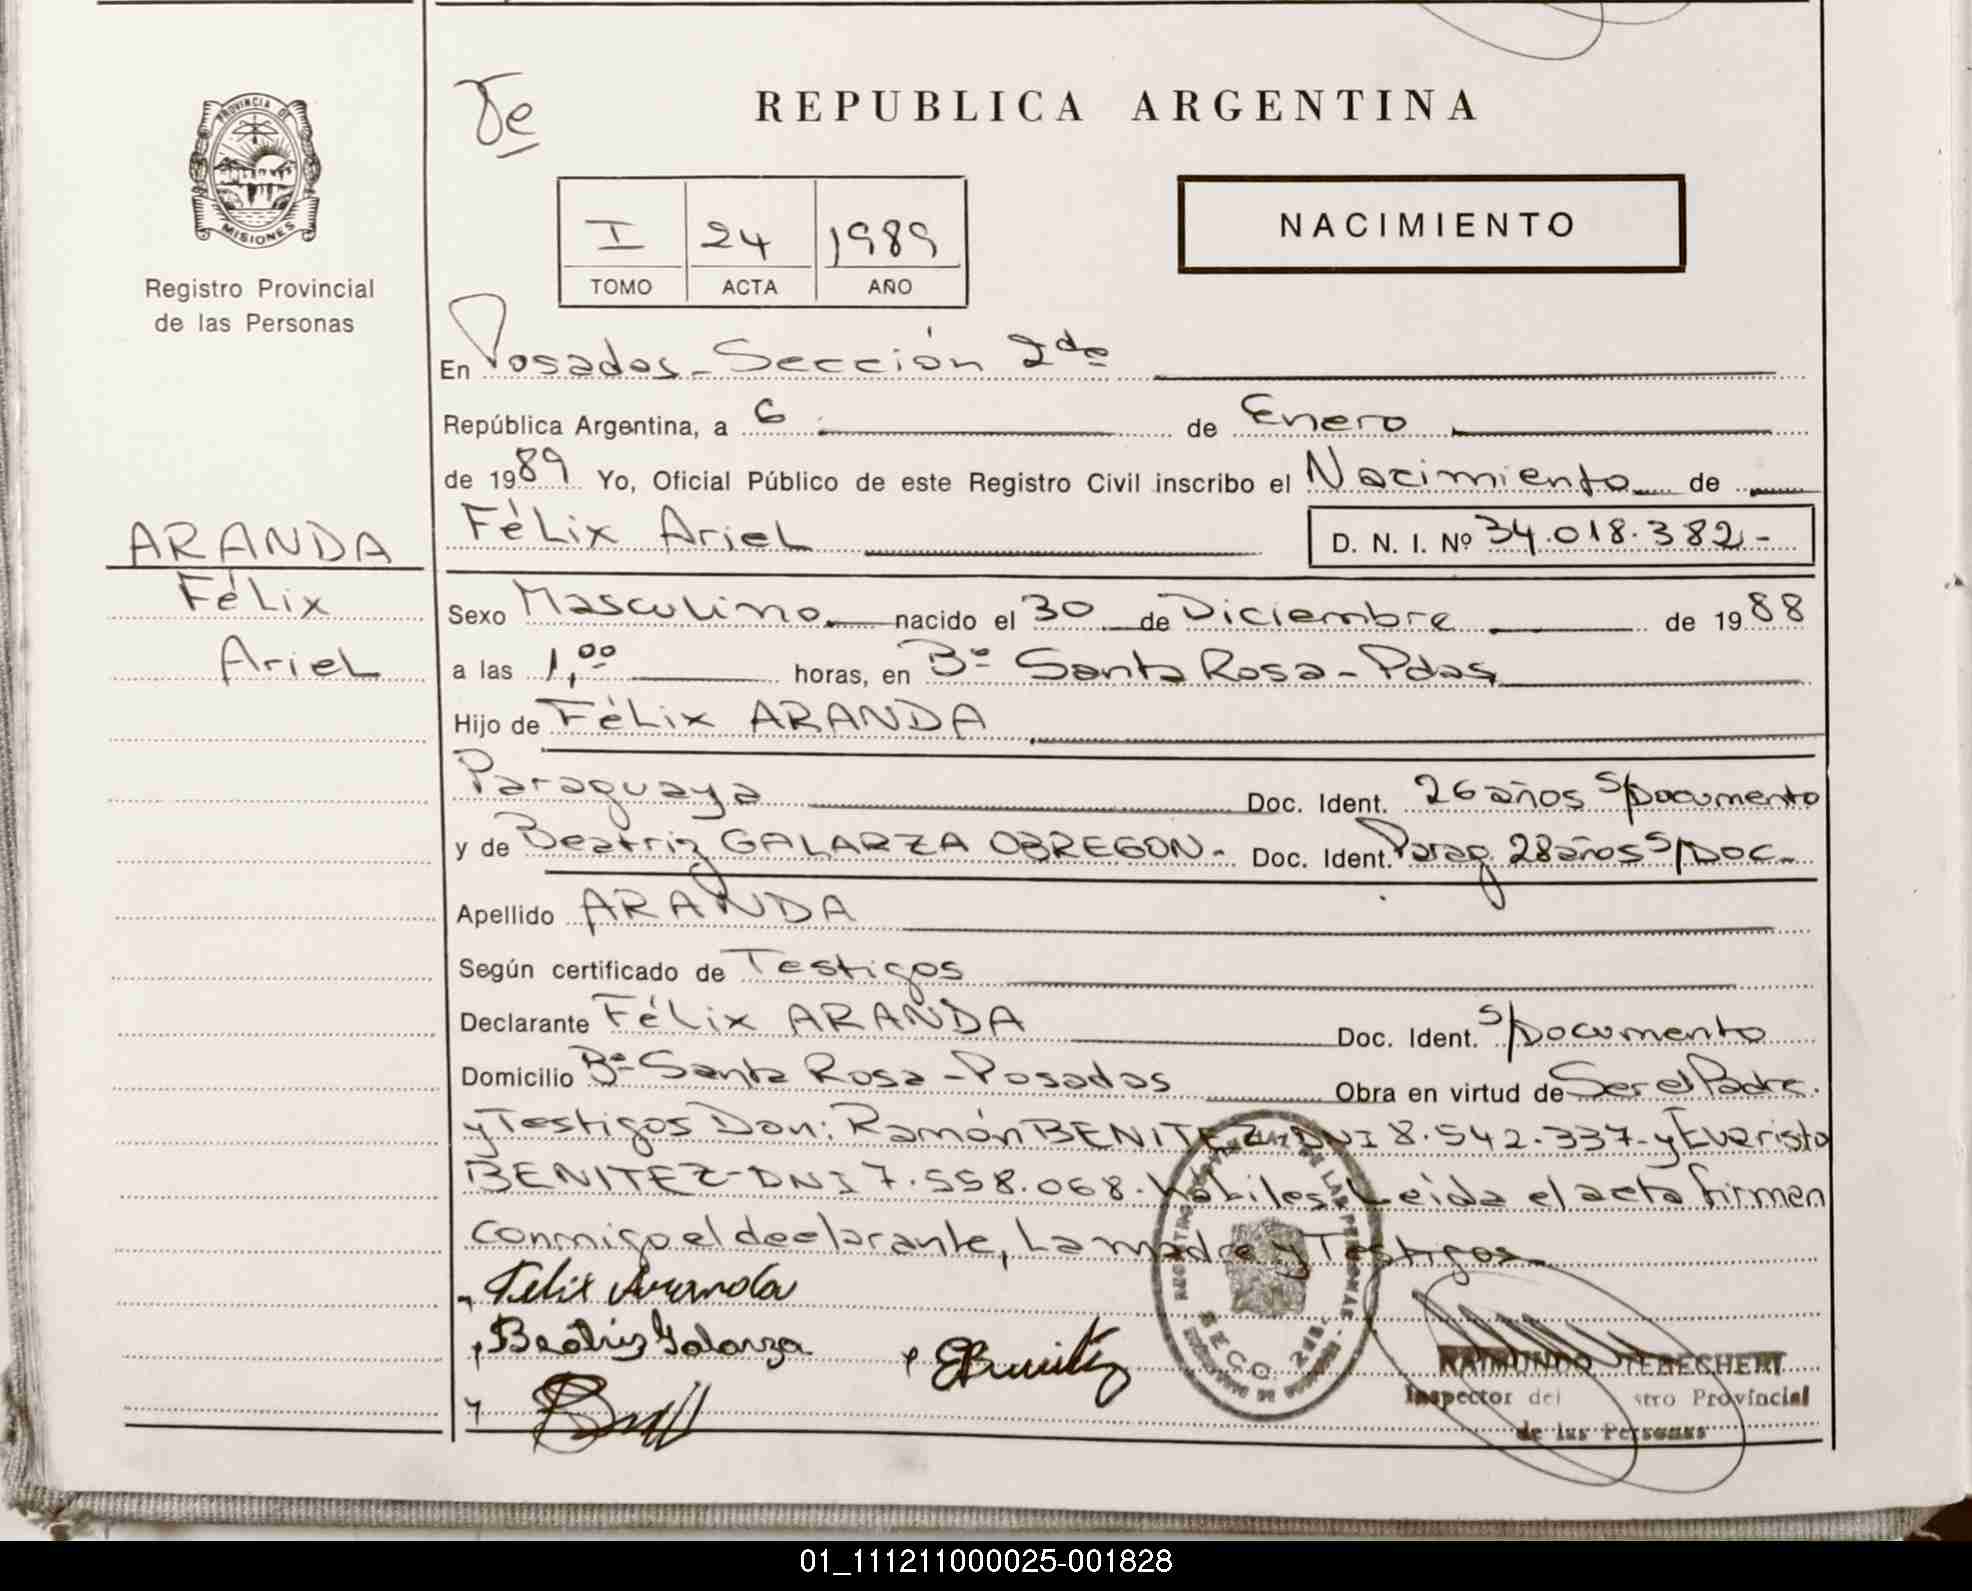 REPUBLICA ARGENTINA
PROVINCIA DE
MISIONES
Registro Provincial
de las Personas
I 24 1989
TOMO ACTA AÑO
NACIMIENTO
En Posadas - Sección 2da
República Argentina, a 6 de Enero
de 1989 Yo, Oficial Público de este Registro Civil inscribo el Nacimiento de
ARANDA
Félix
Ariel
Félix Ariel D. N. I. Nº 34.018.382-
Sexo Masculino nacido el 30 de Diciembre de 1988
a las 1,00 horas, en Bº Santa Rosa - Pdas
Hijo de Félix ARANDA
Paraguaya Doc. Ident. 26 años S/Documento
y de Beatriz GALARZA OBREGON - Doc. Ident. Parag. 28 años S/Doc -
Apellido ARANDA
Según certificado de Testigos
Declarante Félix ARANDA Doc. Ident. S/Documento
Domicilio Bº Santa Rosa - Posadas Obra en virtud de Ser el Padre.
y Testigos Don: Ramón BENITEZ - DNI 8.542.337 - y Evaristo
BENITEZ - DNI 7.558.068. Habiles. Leida el acta firman
conmigo el declarante, La madre y Testigos
Felix Aranda
Beatriz Galarza
EBenitez
DE LAS PERSONAS
SECC. 2da.
RAIMUNDO
Inspector del Provincial
de las Personas
01_111211000025-001828